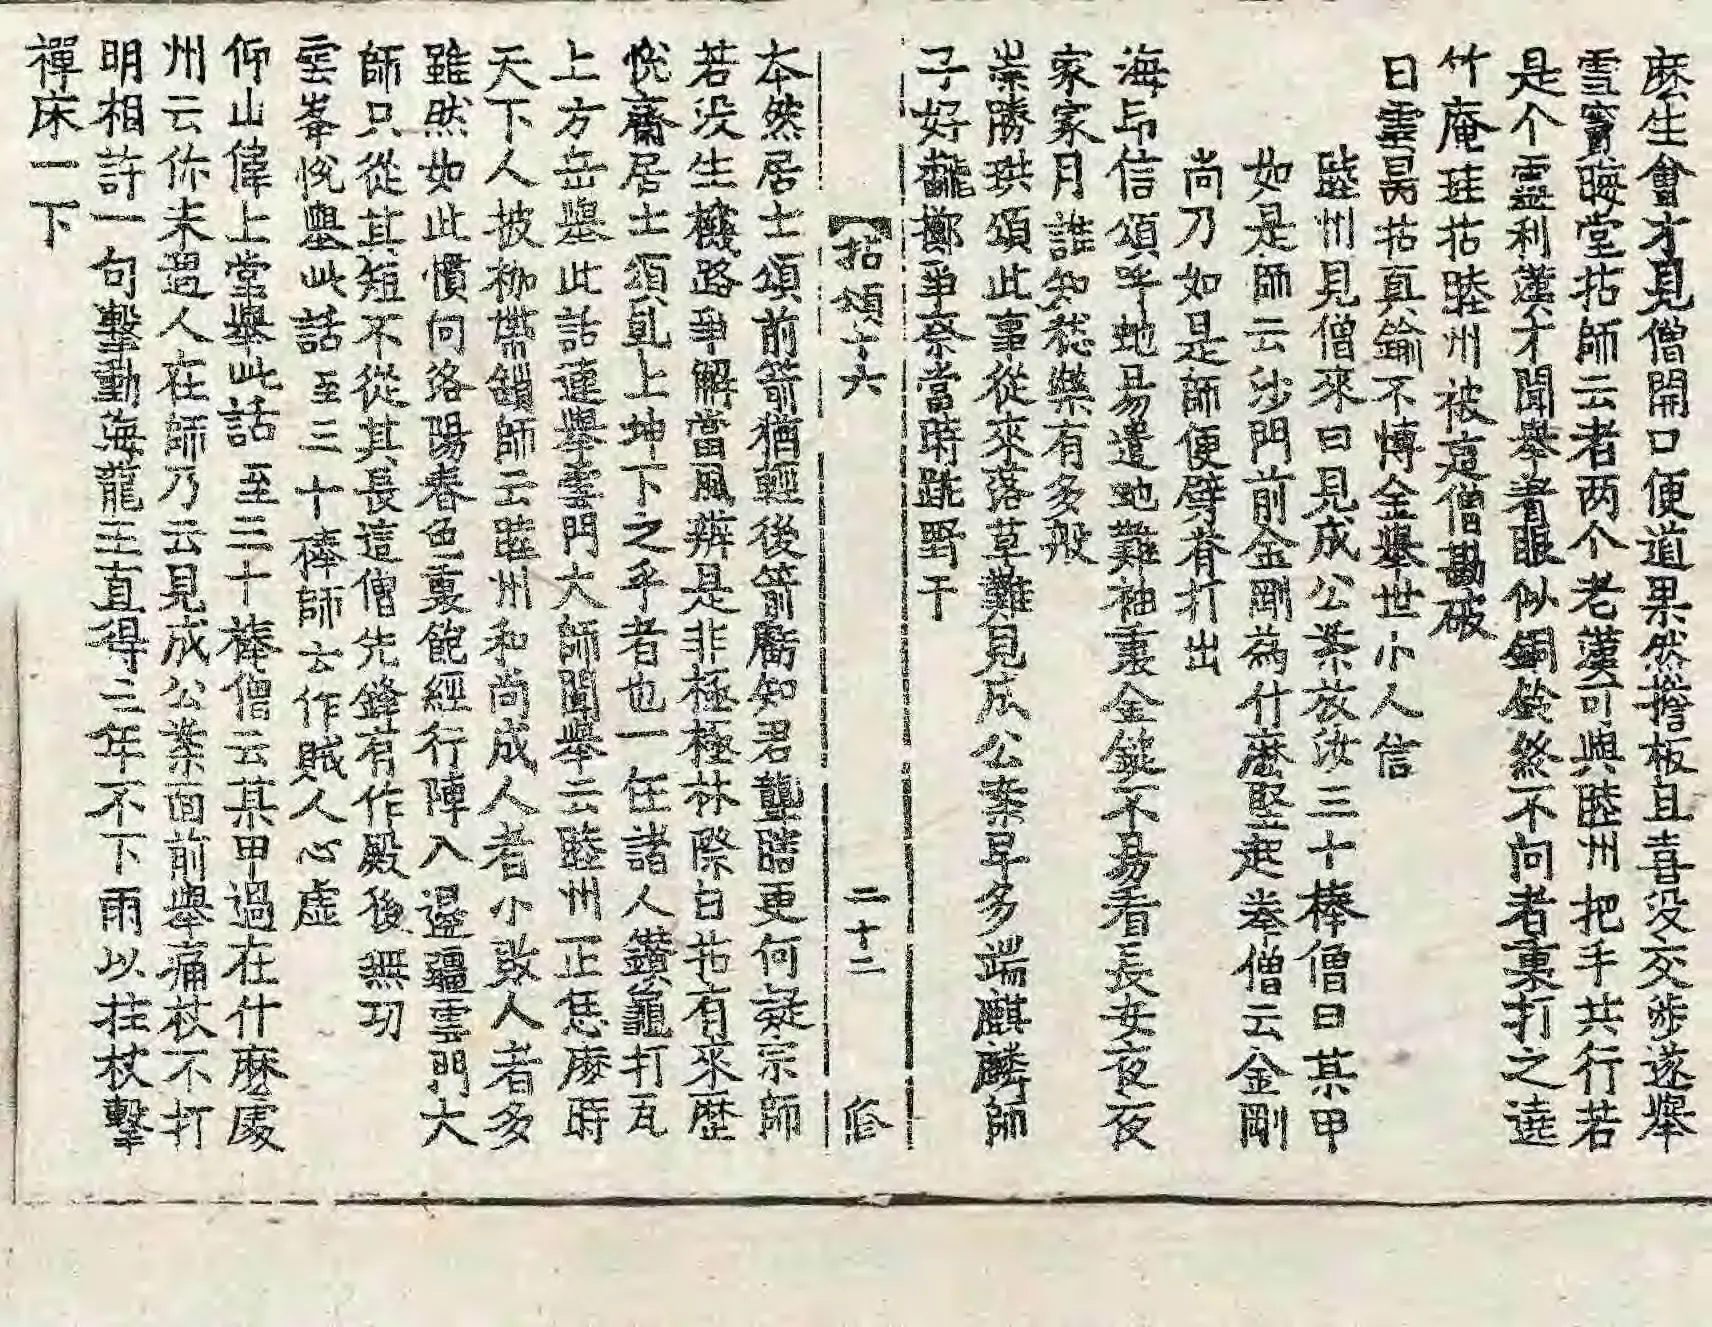 麽生會才見僧開口便道果然擔板且喜没交涉遂舉
雪竇晦堂拈師云者两个老漢可與睦州把手共行若
是个靈利漢才聞舉著眼似銅鈴終不向者裏打之遶
竹庵珪拈睦州被這僧勘破
日雲杲拈真鍮不慱金舉世小人信
睦州見僧來曰見成公案放汝三十棒僧曰某甲
如是師云沙門前金剛為什麽竪起拳僧云金剛
尚乃如是師便劈脊打出
海印信頌呼虵易遣虵難袖裏金鎚不易看長安夜夜
家家月誰知愁樂有多般
崇勝珙頌此事從來落草難見成公案早多端麒麟師
子好巃擲爭奈當時跳野干
拈頌十六 二十二 修
本然居士頌前箭猶輕後箭虧知君聾瞎更何疑宗師
若没生機路爭解當風辨是非極極林際白拈有來歷
悅齋居士頌乹上坤下之乎者也一任諸人鑚龜打瓦
上方岳舉此話連舉雲門大師聞舉云睦州正恁麽時
天下人披枷帶鎖師云睦州和尚成人者小敗人者多
雖然如此慣向洛陽春色裏飽經行陣入邊疆雲門大
師只從其短不從其長這僧先鋒有作殿後無功
雲峯悅舉此話至三十棒師云作賊人心虛
仰山偉上堂舉此話至三十棒僧云某甲過在什麽處
州云你未過人在師乃云見成公案面前舉痛杖不打
明相許一句擊動海龍王直得三年不下雨以拄杖擊
禪床一下